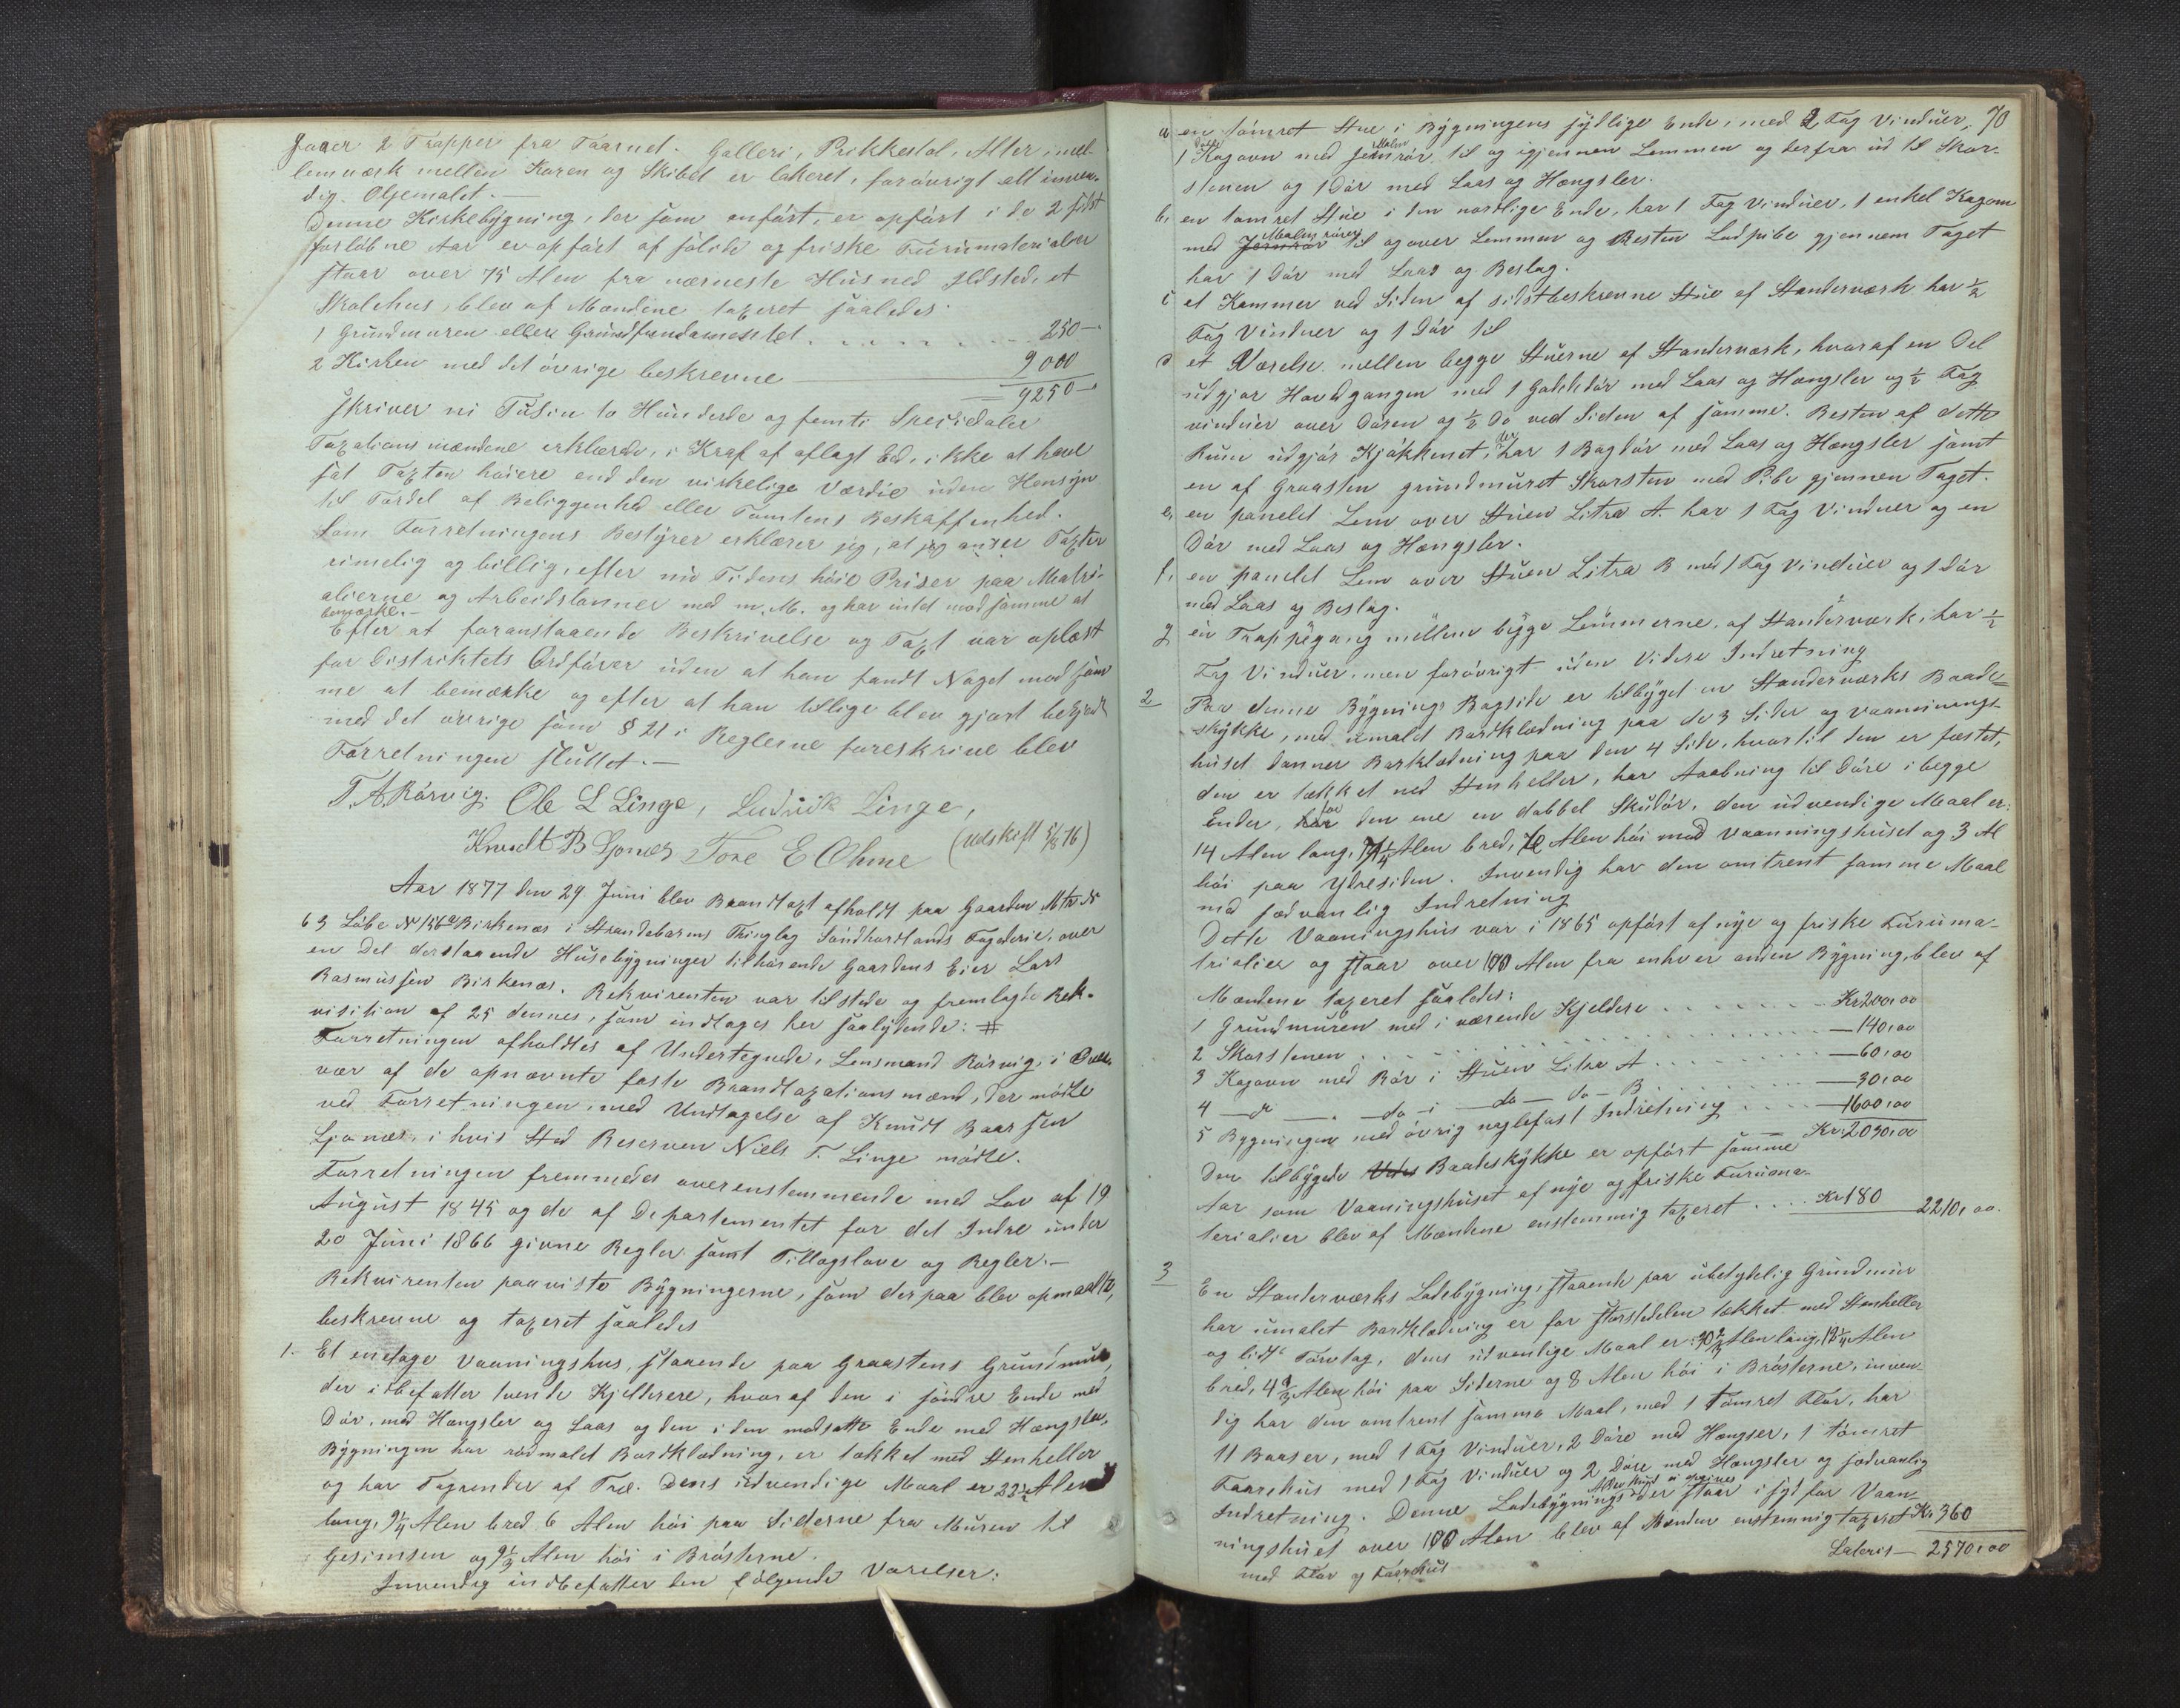 gaaer 2 Trapper fra Taarnet. Galleri, Prikkestol, Alter, mel-
lemværk mellem Koren og Skibet er lakeret, forøvrigt alt inven-
dig Oljemalet.
Denne Kirkebygning, der som anført, er opført i de 2 sidst
forløbne Aar er opført af solide og friske Furumaterialier
staar over 75 Alen fra nærmeste Hus med Ildsted, et
Skolehus, blev af Mændene taxeret saaledes:
1 Grundmuren eller Grundfundamentet . . . . . 250 —
2 Kirken med det øvrige beskrevne — 9000
— 9250 —
skriver ni Tusin to Hunderde og femti Speciedaler
Taxationsmændene erklærede, i Kraf af aflagt Ed, ikke at have
sat Taxten høiere end den virkelige Værdie uden Hensyn
til Fordel af Beliggenhed eller Tomtens Beskaffenhed.
Som Forretningens Bestyrer erklærer jeg, at jeg anser Taxter
rimelig og billig, efter nu Tidens høie Priser paa Matri-
alierne og Arbeidslønner med m. M. og har intet mod samme at
bemærke.—
Efter at foranstaaende Beskrivelse og Taxt var oplæst
for Distriktets Ordfører uden at han fandt Noget mod sam
me at bemærke og efter at han tillige blev gjort bekjendt
med det øvrige som § 21 i Reglerne foreskrive blev
Forretningen sluttet.—
T. A. Rørvig. Ole L Linge, Ludvik Linge,
Knudt B Ljones Tore E Ohme (udskift 5/8 76)
Aar 1877 den 29 Juni blev Brandtaxt afholdt paa Gaarden Mtr N
63 Løbe N 156a Birkenæs i Strandebarms Thinglag Søndhordlands Fogderie, over
en Del derstaaende Husebygninger tilhørende Gaardens Eier Lars
Rasmussen Birkenæs. Rekvirenten var tilstede og fremlagde Rek-
visition af 25 dennes, som indtages her saalydende: #
Forretningen afholdtes af Undertegnede, Lensmand Rørvig, i Over
vær af de opnævnte faste Brandtaxationsmænd, der mødte
ved Forretningen, med Undtagelse af Knudt Baarsen
Ljones, i hvis Sted Reserven Niels T. Linge mødte.
Forretningen fremmedes overenstemmende med Lov af 19
August 1845 og de af Departementet for det Indre under
20 Juni 1866 givne Regler samt Tillægslove og Regler.—
Rekvirenten paaviste Bygningerne, som derpaa blev opmaalte,
beskrevne og taxeret saaledes
1. Et enetages Vaaningshus, staaende paa Graastens Grundmur,
der idbefatter tvende Kjeldere, hvoraf den i søndre Ende med
Dør, med Hængsler og Laas og den i den modsatte Ende med Hængsler,
Bygningen har rødmalet Bordklædning, er tækket med Stenheller
og har Tagrender af Træ. Dens udvendige Maal er 22½ Alen
lang, 9¼ Alen bred 6 Alen høi paa Siderne fra Muren til
Gesimsen og 9⅓ Alen høi i Brøsterne.
Invendig indbefatter den følgende Værelser:
70
a en tømret Stue i Bygningens sydlige Ende, med 2 Fag Vinduer,
1 Kagovn med Jernrør til og igjennem Lemmen og derfra ud til Skor-
stenen og 1 Dør med Laas og Hængsler.
b, en tømret Stue i den nordlige Ende, har 1 Fag Vinduer, 1 enkel Kagovn
Malmrører
med Jernrør til og over Lemmen og Resten Ludpibe gjennem Taget
har 1 Dør med Laas og Beslag.
c et Kammer ved Siden af sidstbeskrevne Stue af Standerværk har ½
Fag Vinduer og 1 Dør til
d et Værelse mellem begge Stuerne af Standerværk, hvoraf en Del
udgjør Hovedgangen med 1 Gadedør med Laas og Hængsler og ½ Fag
vinduer over Døren og ½ do ved Siden af samme. Resten af dette
Rum udgjør Kjøkkenet, der har 1 Bagdør med Laas og Hængsler samt
en af Graasten grundmuret Skorsten med Pibe gjennem Taget.
e, en panelet Lem over Stuen Litra A. har 1 Fag Vinduer og en
Dør med Laas og Hængsler.
f, en panelet Lem over Stuen Litra B med 1 Fag vinduer og 1 Dør
med Laas og Beslag.
g en Trappegang mellem begge Lemmerne, af Standerværk, har ½
Fag Vinduer, men forøvrigt uden Videre Indretning
2 Paa denne Bygnings Bagside er tilbyget en Standerværks Baade-
skykke, med umalet Bordklædning paa de 3 Sider og vaaningngs-
huset danner Borklædning paa den 4 Side, hvortil den er fæstet,
den er tækket med Stenheller, har Aabning til Døre i begge
Ender, for den ene en dobbel Skudør, den udvendige Maal er:
14 Alen lang, Alen bred, Alen høi mod Vaanningshuset og 3 Al
høi paa Ydresiden. Invendig har den omtrent samme Maal
med sædvanlig Indretning
Dette Vaaningshus var i 1865 opført af nye og friske Furuma-
trialier og staar over 100 Alen fra enhver anden Bygning, blev af
Mændene taxeret saaledes:
1 Grundmuren med i værende Kjeldere . . . . . Kr 200,00
2 Skorstenen . . . . . — 140,00
3 Kagovn med Rør i Stuen Litra A . . . . . — 60,00
4 — do — . — do — i — do — do — B . . . . . — 30,00
5 Bygningen med øvrig naglefast Indretning . . . . — 1600,00
— Kr. 2030,00
Den tilbygede Baadeskykke er opført samme
Aar som Vaaningshuset af nye og friske Furuma-
terialier blev af Mændene enstemmig taxeret . . . Kr 180 2210,00.
3 En Standerværks Ladebygning, staaende paa ubetydelig Grundmur
har umalet Bordklædning er for størstedelen tækket med Stenheller
og lidt Torvtag, dens udvendige Maal er: Alen lang, Alen
bred, Alen høi paa Siderne og 8 Alen høi i Brøsterne, inven
dig har den omtrent samme Maal, med 1 tømret Flor, har
11 Baaser, med 1 Fag Vinduer, 2 Døre med Hængser, 1 tømret
Faarehus med 1 Fag Vinduer og 2 Døre med Hængsler og sædvanlig
Indretning. Denne Ladebygning der staar i syd for Vaan
ningshuset over 100 Alen blev af Mænden enstemmig taxeret Kr. 360
med Flor og Faarehus
Lateris — 2570,00